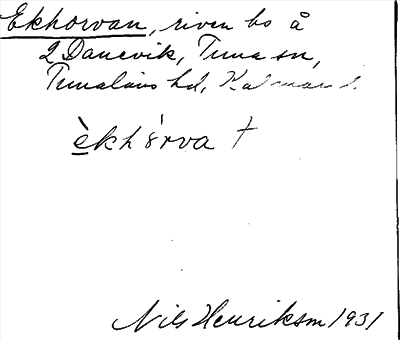 Ekhorvan, riven bs å
2 Danevik, Tuna sn,
Tunaläns hd, Kalmar l.
èkhŏ́rva †
Nils Henriksson 1931